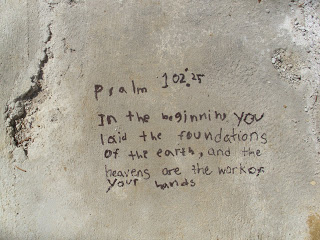 psalm 102:25
In the beginning you
laid the foundations
of the earth, and the
heavens are the work of
your hands